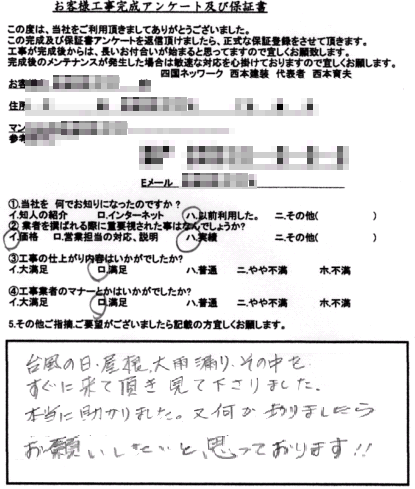 お客様工事完成アンケート及び保証書
この度は、当社をご利用頂きましてありがとうございました。
この完成及び保証書アンケートを返信頂けましたら、正式な保証登録をさせて頂きます。
工事が完成後からは、長いお付合いが始まると思ってますので宜しくお願致します。
完成後のメンテナンスが発生した場合は敏速な対応を心掛けておりますので宜しくお願します。
四国ネッワーク 西本建装 代表者 西本育夫
お客様
住所
マン
参考
Eメール
①.当社を 何でお知りになったのですか？
イ.知人の紹介 ロ.インターネット ハ.以前利用した。 ニ.その他( )
② 業者を撰ばれる際に重要視された事はなんでしょうか？
イ.価格 ロ.営業担当の対応、説明 ハ.実績 ニ.その他( )
③工事の仕上がり内容はいかがでしたか？
イ.大満足 ロ.満足 ハ.普通 ニ.やや不満 ホ.不満
④工事業者のマナーとかはいかがでしたか？
イ.大満足 ロ.満足 ハ.普通 ニ.やや不満 ホ.不満
5.その他ご指摘、ご要望がございましたら記載の方宜しくお願します。
台風の日・屋根、大雨漏り、その中を
すぐに来て頂き見て下さりました。
本当に助かりました。又何かありましたら
お願いしたいと、思っております!!